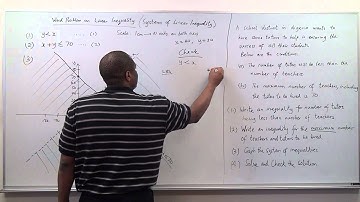 Word Problem on Linear Inequality (Systems of Linear Inequality)
(1) y < x
(2) x + y ≤ 70
(3)
Scale
on both axes
Check
y < x
A school district in
wants to
hire some tutors to help in ensuring the
success of all their students
Below are the conditions
(i) The number of tutors will be less than the
number of teachers
(ii) The maximum number of teachers, including
the tutors to be hired is 70
(1) Write an inequality for number of tutors
being less than number of teachers
(2) Write an inequality for the maximum
number of teachers and tutors to be hired
(3) Graph the system of inequalities
(4) Solve and Check the solution